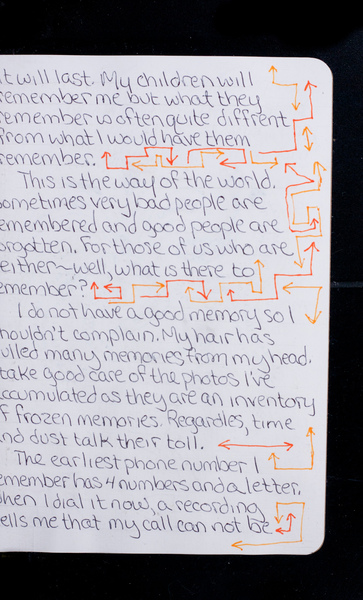 it will last. My children will
remember me but what they
remember is often quite diffrent
from what I would have them
remember.
This is the way of the world.
sometimes very bad people are
emembered and good people are
orgotten. For those of us who are
either~well, what is there to
emember?
I do not have a good memory so I
houldn't complain. My hair has
ulled many memories from my head.
take good care of the photos I've
ccumulated as they are an inventory
f frozen memories. Regardles, time
nd dust talk their toll.
The earliest phone number I
emember has 4 numbers and a letter.
hen I dial it now, a recording
ells me that my call can not be